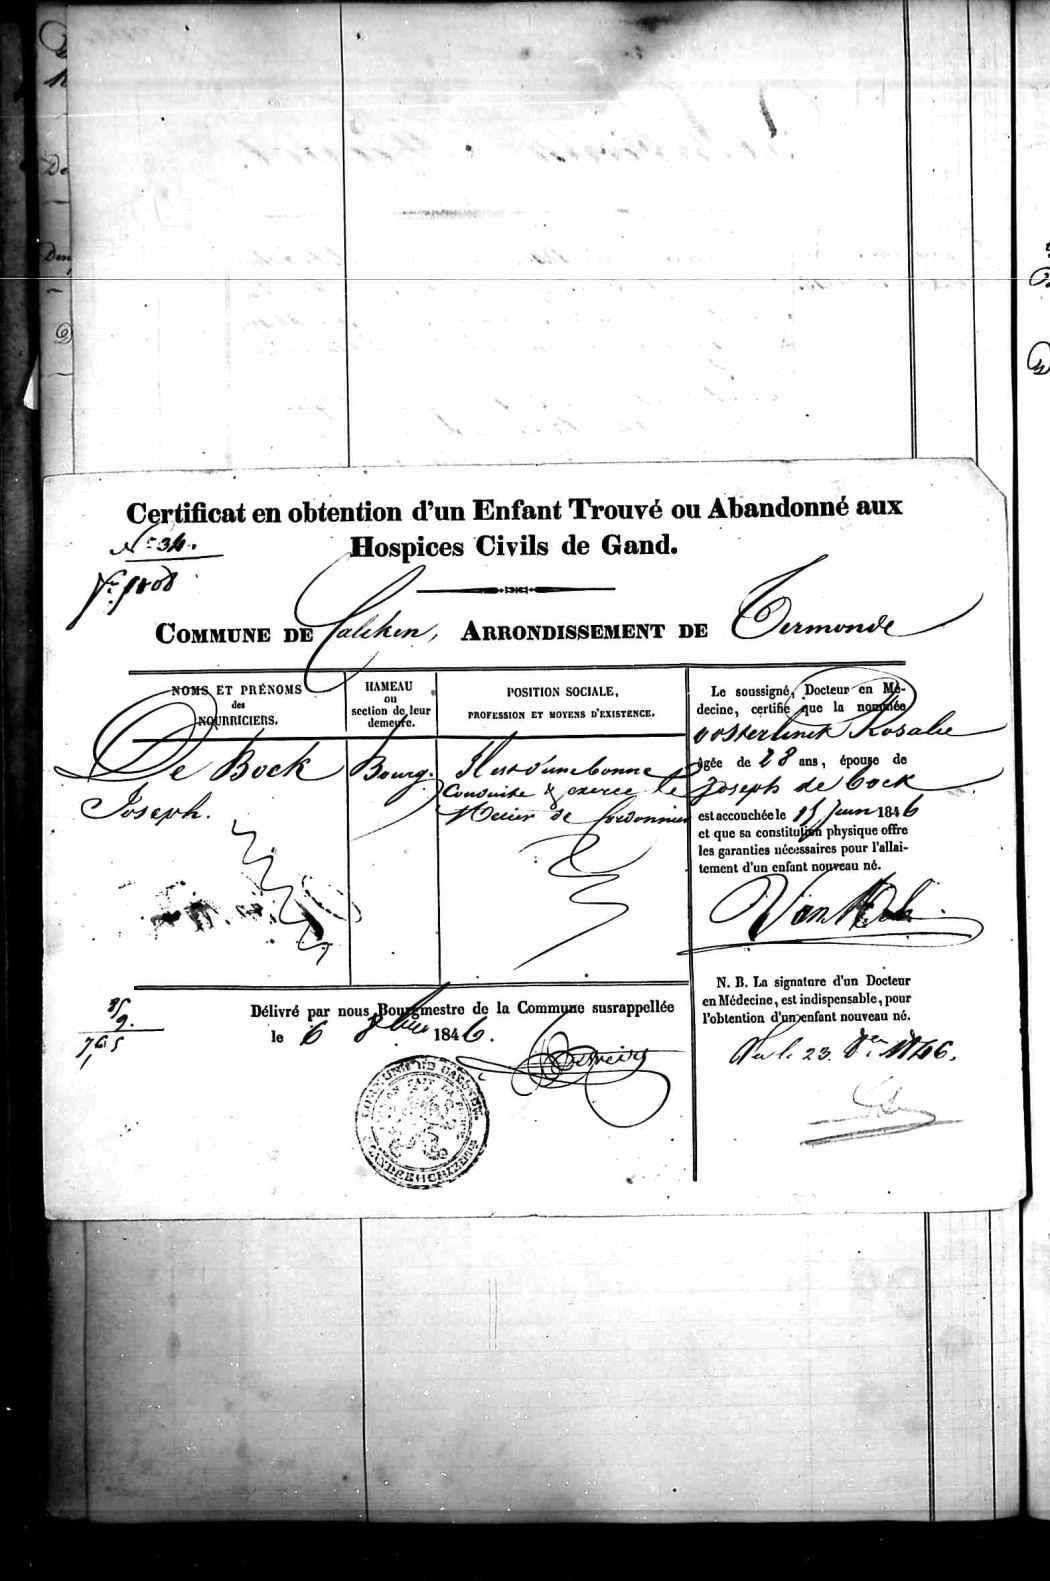 Certificat en obtention d'un Enfant Trouvé ou Abandonné aux
Hospices Civils de Gand.
No 34.
COMMUNE DE Calcken, ARRONDISSEMENT DE Termonde
NOMS ET PRÉNOMS
des
NOURRICIERS.
HAMEAU
ou
section de leur
demeure.
POSITION SOCIALE,
PROFESSION ET MOYENS D'EXISTENCE.
De Bock
Joseph.
Bourg.
Il est d'une bonne
Conduite & exerce le
Metier de Cordonnier
Le soussigné, Docteur en Mé-
decine, certifie que la nommée
Oosterlinck Rosalie
âgée de 28 ans, épouse de
Joseph de Bock
est accouchée le 15 Juin 1846
et que sa constitution physique offre
les garanties nécessaires pour l'allai-
tement d'un enfant nouveau né.
N. B. La signature d'un Docteur
en Médecine, est indispensable, pour
l'obtention d'un enfant nouveau né.
Vu le 23 1846.
Délivré par nous Bourgmestre de la Commune susrappellée
le 6 1846.